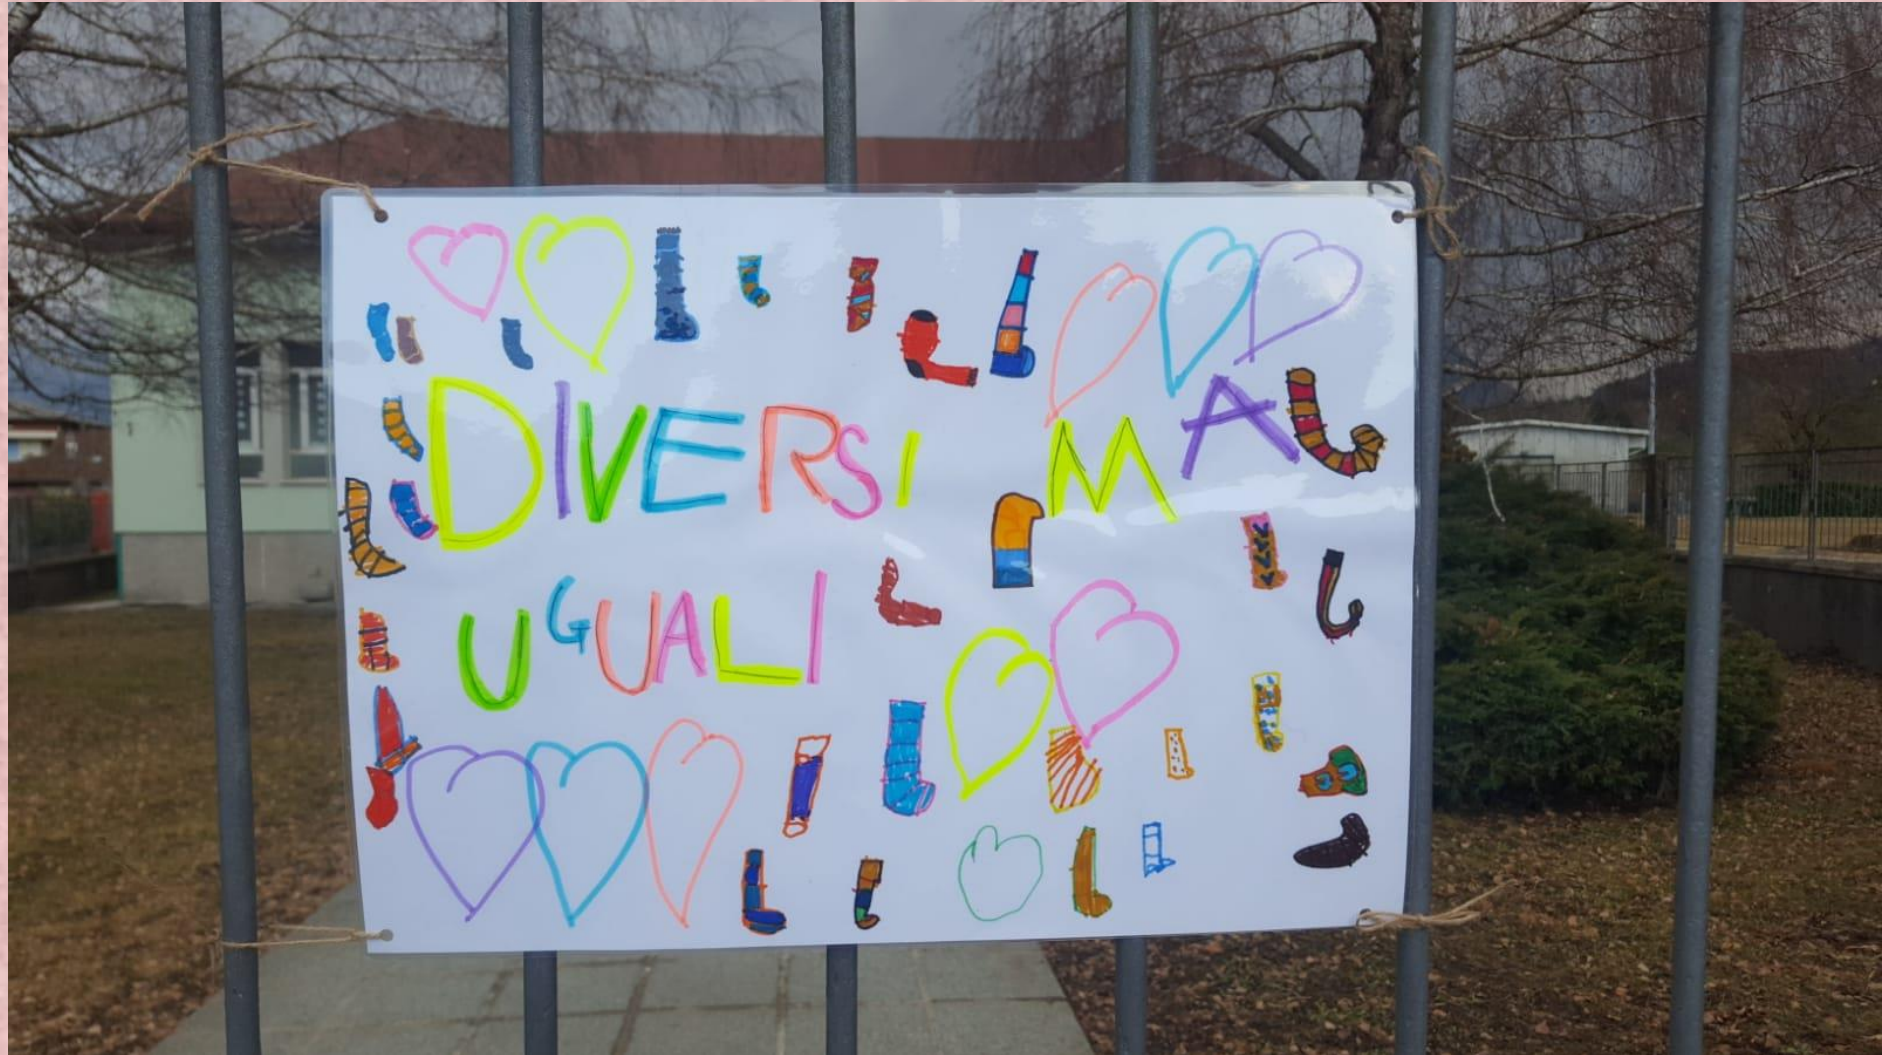 DIVERSI MA
UGUALI